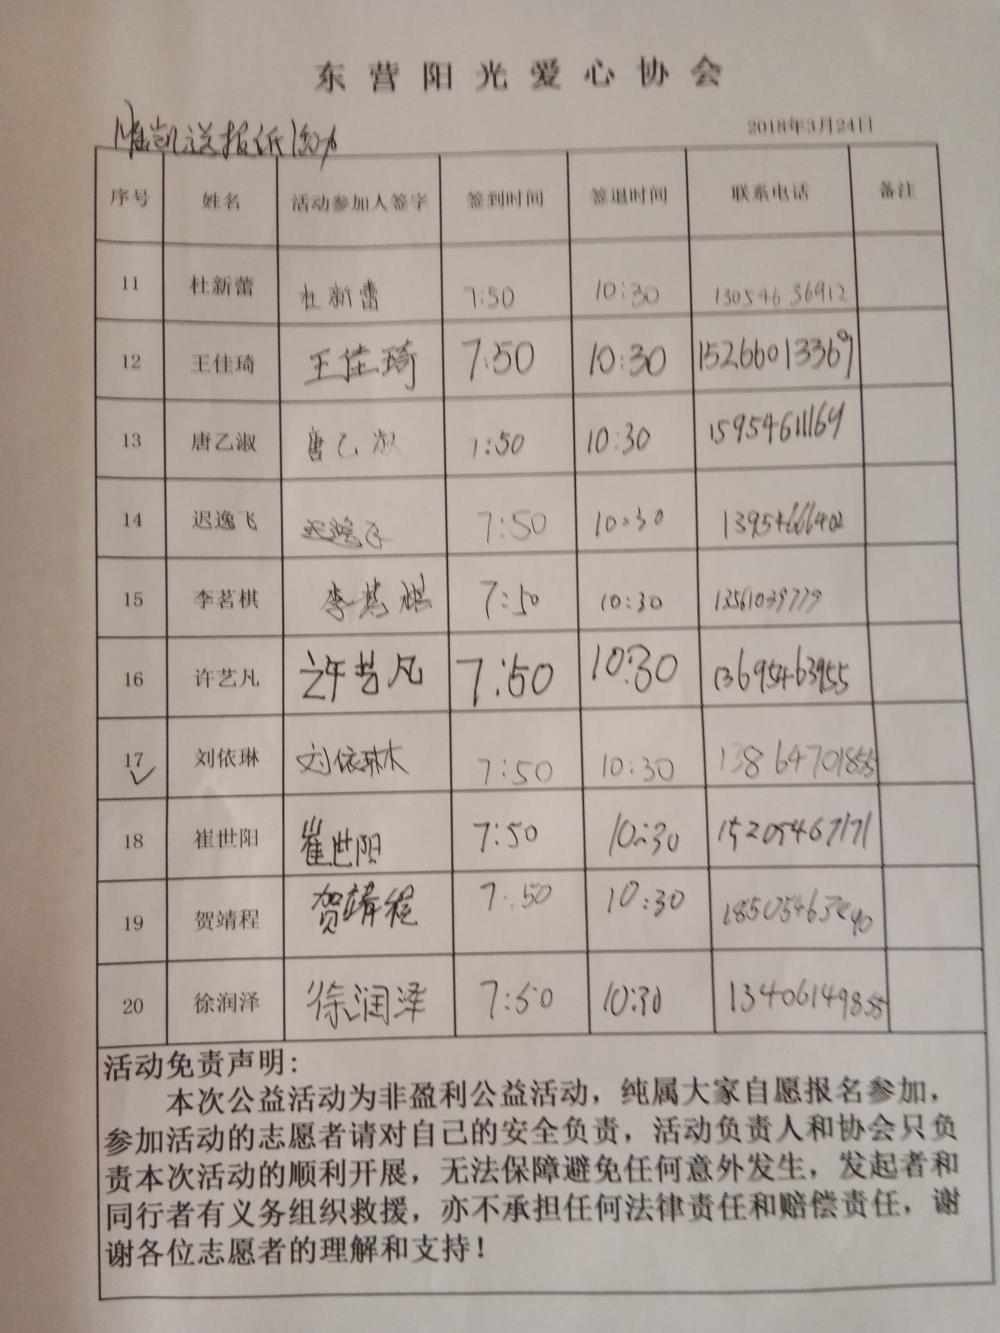 东营阳光爱心协会
送报纸活动
2018年3月24日
序号 姓名 活动参加人签字 签到时间 签退时间 联系电话 备注
11 杜新蕾 杜新蕾 7:50 10:30 13054636912
12 王佳琦 王佳琦 7:50 10:30 15266013369
13 唐乙淑 唐乙淑 7:50 10:30 15954611169
14 迟逸飞 迟逸飞 7:50 10:30 13954666402
15 李茗棋 李茗棋 7:50 10:30 13561039779
16 许艺凡 许艺凡 7:50 10:30 13695463955
17 刘依琳 刘依琳 7:50 10:30 13864701855
18 崔世阳 崔世阳 7:50 10:30 15205467171
19 贺靖程 贺靖程 7:50 10:30
20 徐润泽 徐润泽 7:50 10:30 13406149855
活动免责声明:
本次公益活动为非盈利公益活动，纯属大家自愿报名参加，
参加活动的志愿者请对自己的安全负责，活动负责人和协会只负
责本次活动的顺利开展，无法保障避免任何意外发生，发起者和
同行者有义务组织救援，亦不承担任何法律责任和赔偿责任，谢
谢各位志愿者的理解和支持！